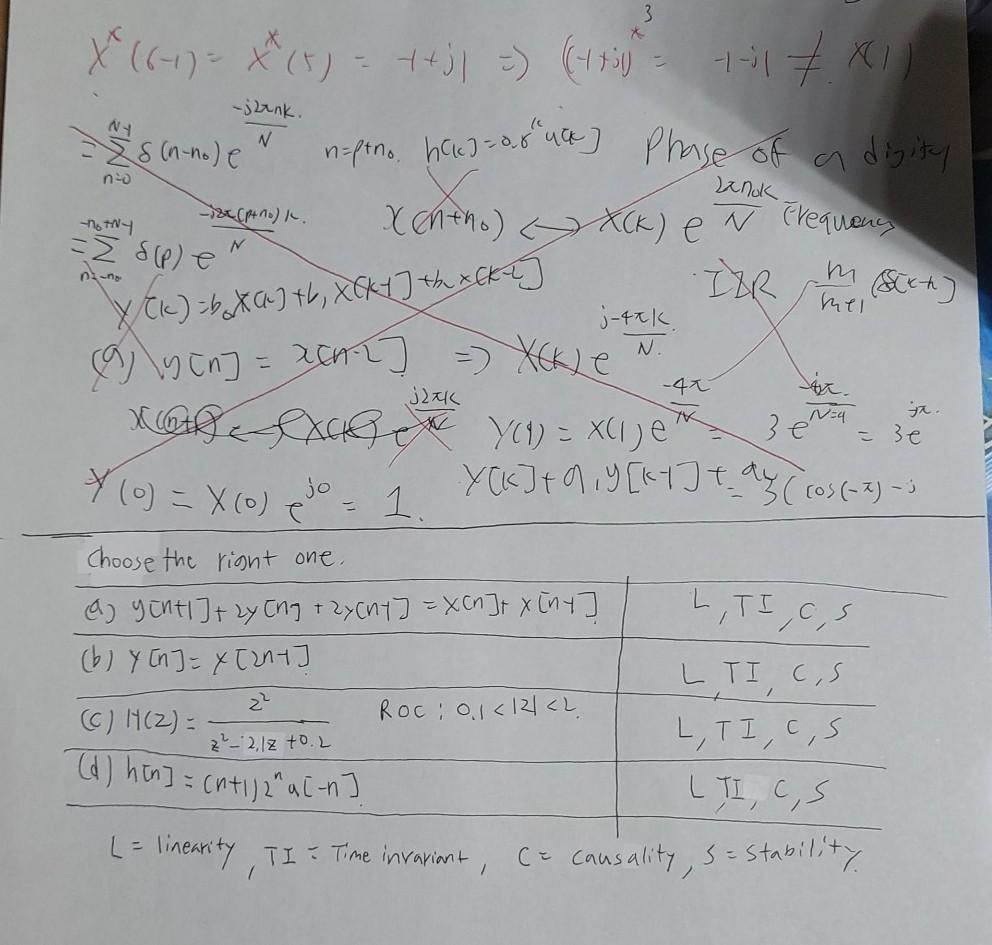 X*(6-1) = X*(5) = -1+j1 => (-1+j1)* = -1-j1 ≠ X(1)
3
= Σ δ(n-n₀) e^(-j2πnk/N) n=p+n₀ h[k]=0.8^k u[k] Phase of a digity
N-1
n=0
x(n+n₀) <-> X(k) e^(2πn₀k/N) Frequency
-n₀+N-1
= Σ δ(p) e^(-j2π(p+n₀)k/N)
n=-n₀
Y[k]=b₀X[k]+b₁X[k-1]+b₂x[k-2] IIR m/m+1 δ[k-h]
(a) y[n] = x[n-2] => X(k) e^(j-4πk/N)
Y(1) = X(1) e^(-4π/N) = 3e = 3e^(-jπ)
Y(0) = X(0) e^(j0) = 1. Y[k]+a₁y[k-1]+ = 3(cos(-π)-j
Choose the right one.
(a) y[n+1]+2y[n]+2y[n-1] = x[n]+x[n-1] L, TI, C, S
(b) y[n] = x[2n-1] L, TI, C, S
(c) H(z) = z²/(z²-2.1z+0.2) ROC : 0.1<|z|<2. L, TI, C, S
(d) h[n] = (n+1)2ⁿu[-n] L, TI, C, S
L = linearity, TI = Time invariant, C = causality, S = stability.